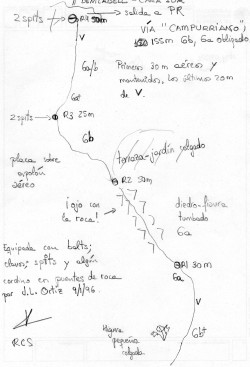 DEMIABELL - CARA SUR
2 spits
R4 50m
salida a PR
VÍA "CAMPURRIANO"
155m 6b, 6a obligado
V
6a/b
Primeros 30m aéreos y
mantenidos, los últimos 20m
de V.
6a+
2 spits
R3 25m
6b
placa sobre
aéreo
terraza-jardín colgado
R2 50m
¡ojo con
la roca!
diedro-fisura
tumbado
6a
R1 30m
6a
V
Equipada con bolts,
clavos, spits y algún
cordino en puentes de roca
por J.L. Ortiz 9/1/96.
RCS
Higuera
pequeña
colgada
6b+